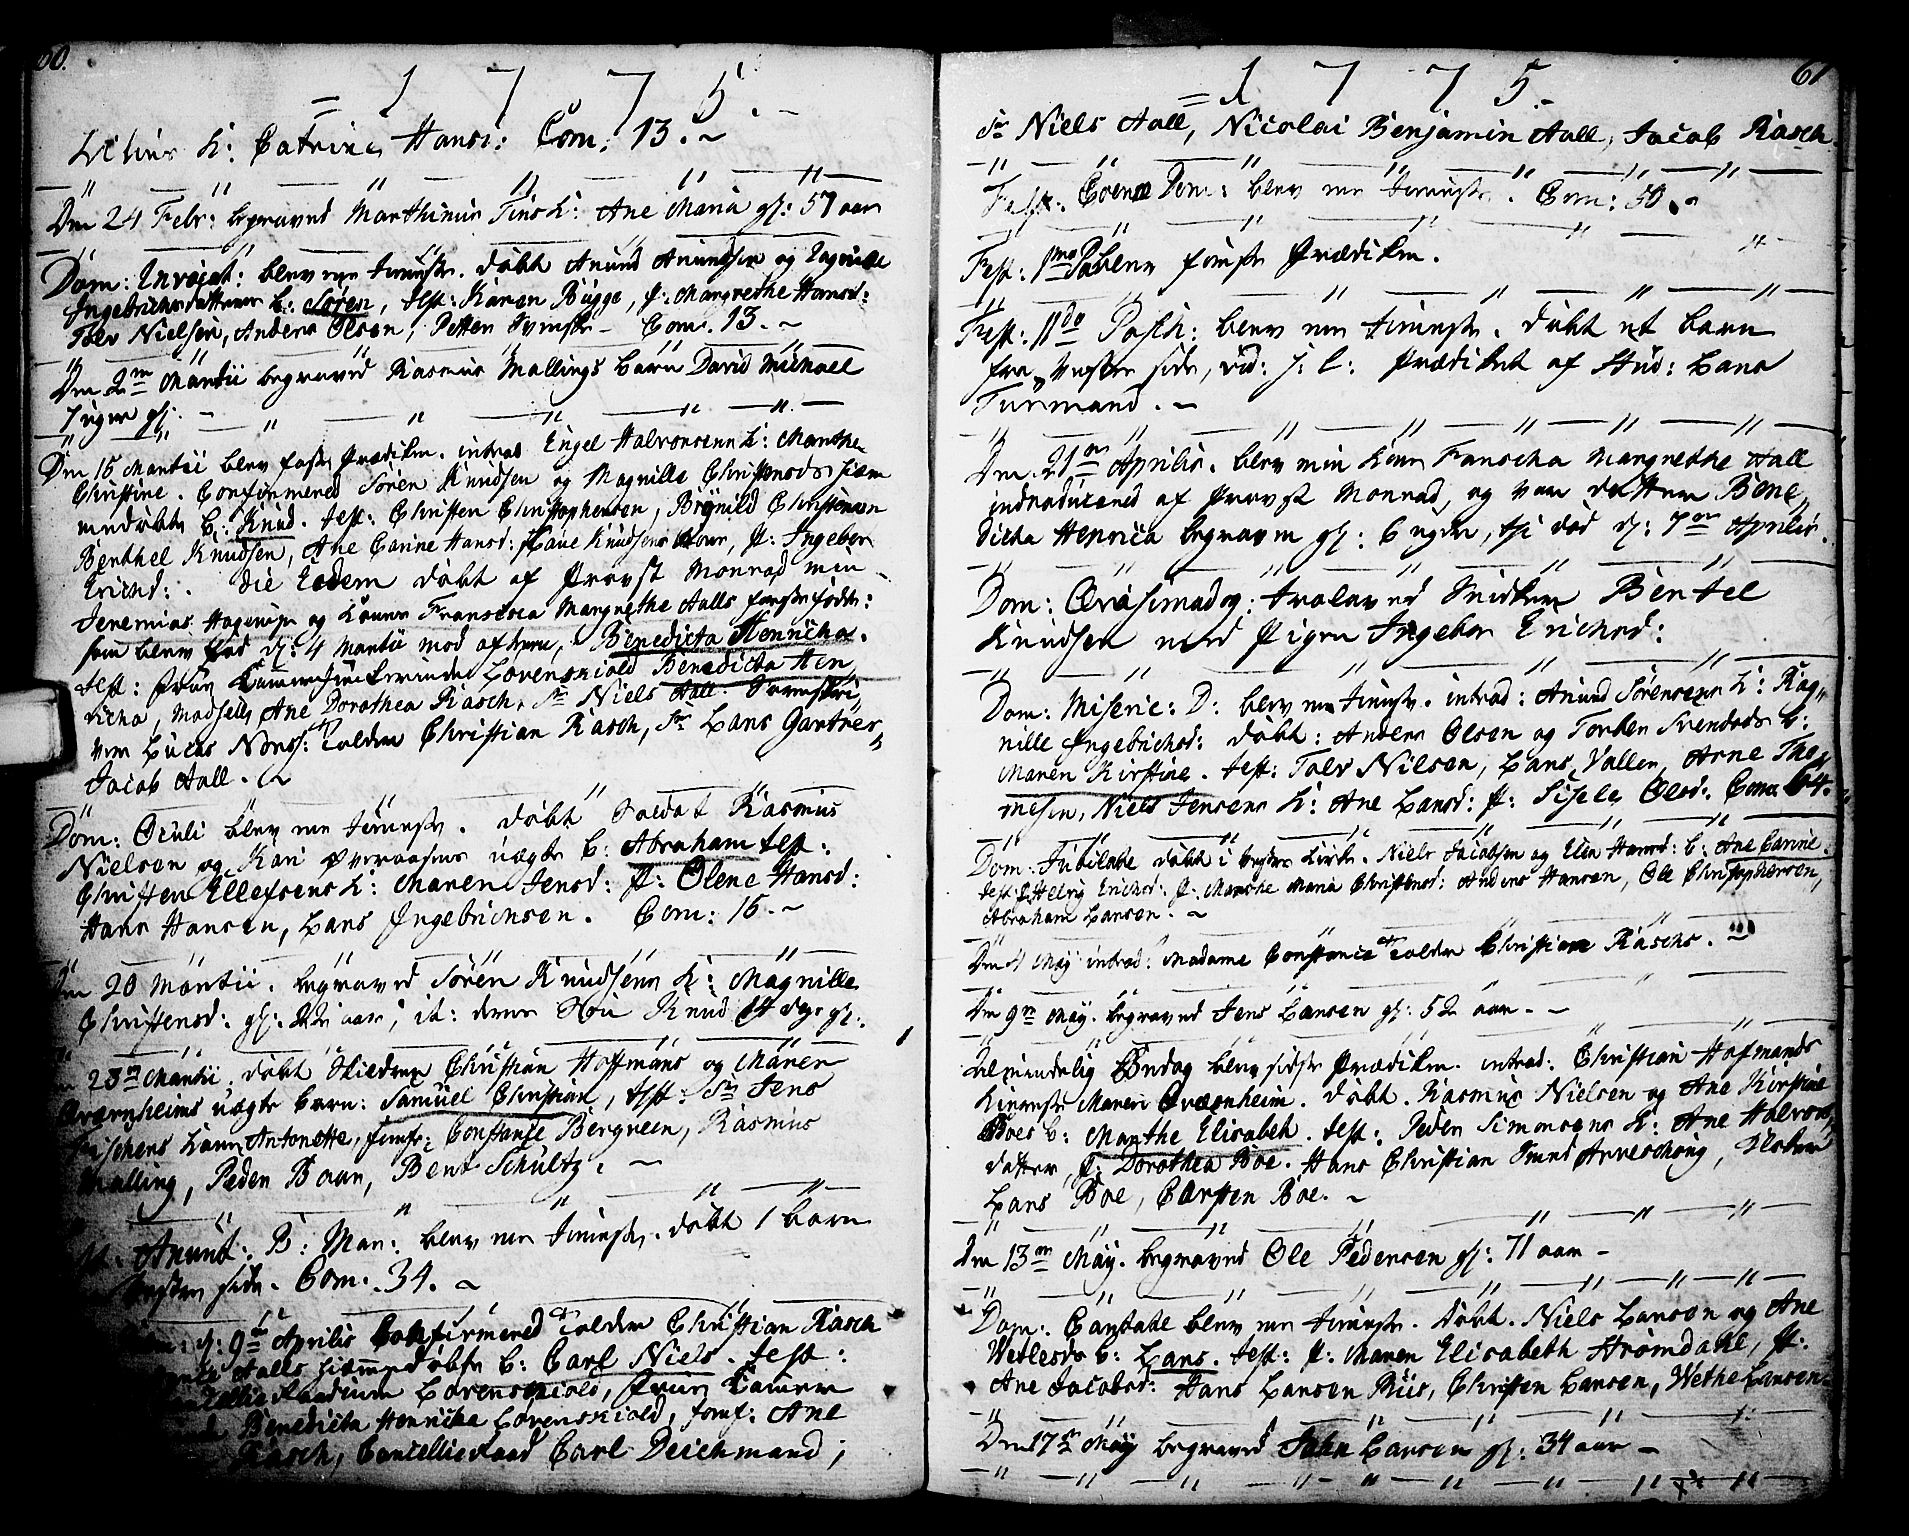 60.
= 1 7 7 5. -
K: Catrine Hansd: Com: 13. ~
Den 24 Febr: begraved Marthinus K: Ane Maria gl: 57 aar
Dom: Invocat: blev me tieniste. døbt Anund Anundsen og Ragnille
Ingebrichsdatters b: Søren, test: Karen Bugge, p: Margrethe Hansd:
Tolv Nielsen, Anders Olsen, Petter - Com. 13. ~
Den 2den Martii begraved Rasmus Mallings barn David Michael
7 uger gl: -
Den 15 Martii blev faste Prædiken. introd Engel Halvorsens K: Marthe
Christine. Confirmered Søren Knudsen og Magnille Christensds hiem
medøbte b: Knud. test: Christen Christophersen, Brynild Christensen
Berthel Knudsen, Ane Carine Hansd: Knudsens, p: Ingebor
Erichsd: . die Eodem døbt af Provst Monrad min
Jeremias Hagerups og Konens Franscisca Margrethe Aalls første fødte:
som blev fød d: 4 Martii mod aftenen, Benedicta Henricha.
test: Frue Løvenskiold Benedicta Hen
richa, Madselle Ane Dorothea Rasch, Sr Niels Aall.
ver Lucas tolder Christian Rasch, Sr Lars Gartner
Jacob Aall. ~
Dom: Oculi blev me tieniste. døbt Soldat Rasmus
Nielsen og Kari Øveraasens uægte b: Abraham test:
Christen Ellefsens K: Maren Jensd: p: Olene Hansd:
Hans Hansen, Lars Ingebrichsen. Com: 15. ~
Den 20 Martii. begraved Søren Knudsens K: Magnille
Christensd: gl: 22 aar, it: deres Søn Knud 14 dage gl:
23de Martii. døbt Skieldrer Christian Hoffmans og Maren
Qværnheims uægte barn: Samuel Christian, test: Sr Jens
Kone Antonette, Jomfr: Constanse Bergreen, Rasmus
Malling, Peder Boun, Bent Schultz. ~
Anunt: B: Mar: blev me tieniste. døbt 1 barn
Vestre side. Com. 34. ~
d: 9de Aprilis Confirmered tolder Christian Rasch
Aalls hiemmedøbte b: Carl Niels. test:
Løvenskiold, Frue
Benedicta Henricha Løvenskiold, Jomf: Ane
Rasch, CancellieRaad Carl Deichmand;
61
= 1 7 7 5. -
Sr Niels Aall, Nicolai Benjamin Aall, Jacob Rasch.
Fest: Coenæ Dom: blev me tieniste. Com: 50. ~
Fest: 1ma Pasch: blev Prædiken.
Fest: IIda Pasch: blev me tieniste. døbt et barn
fra Vestre side, vid: j: l: Prædiket af Stud: Lars
Tuxmand. ~
Den 21de Aprilis. blev min Kone Fanscha Margrethe Aall
indroducered af Provst Monrad, og vor datter Bene
dicta Henrica begraven gl: 6 uger, d: 7de Aprilis.
Dom: Qvasimodog: trolaved Berdtel
Knudsen med Pigen Ingebor Erichsd:
Dom: Miseric: D: blev me tieniste. introd: Anund Sørensens K: Rag
nille Ingebrichsd: døbt: Anders Olsen og Torber Svendsds b:
Maren Kirstine. test: Tolv Nilsen, Lars Vallen, Arne Tho
mesen, Niels Jensens K: Ane Larsd: p: Sisele Olsd: Com: 64.
Dom: Jubilate døbt i Vestre Kirke. Niels Jacobsen og Elen Hansd: b: Ane Carine.
test: Helvig Erichsd: p: Marthe Maria Christensd: Anders Hansen, Ole Christophersen,
Abraham Larsen. ~
Den 4 Maÿ introd: Madame Constance tolder Christian Raschs. ~
Den 9de Maÿ. begraved Jens Larsen gl: 52 aar. -
Almindelig Bededag blev sidste Prædiken. introd: Christian Hofmands
Maren Qværnheim. døbt. Rasmus Nielsen og Ane Kirstine
Boes b: Marthe Elisabeh. test: Peder Simonsens K: Ane Halvors
datter, p: Dorothea Boe. Hans Christian Arveschoug, Kloker
Lars Boe, Carsten Boe. ~
Den 13de Maÿ. begraved Ole Pedersen gl: 71 aar -
Dom: Cantate blev me tieniste. døbt. Niels Larsen og Ane
Wetlesds b: Lars. test: p: Maren Elisabeth Strømdahl, p:
Ane Jacobsd: Hans Larsen Riis, Christen Larsen, Wethe Larsen.
Den 17de Maÿ begraved John Larsen gl: 34 aar -